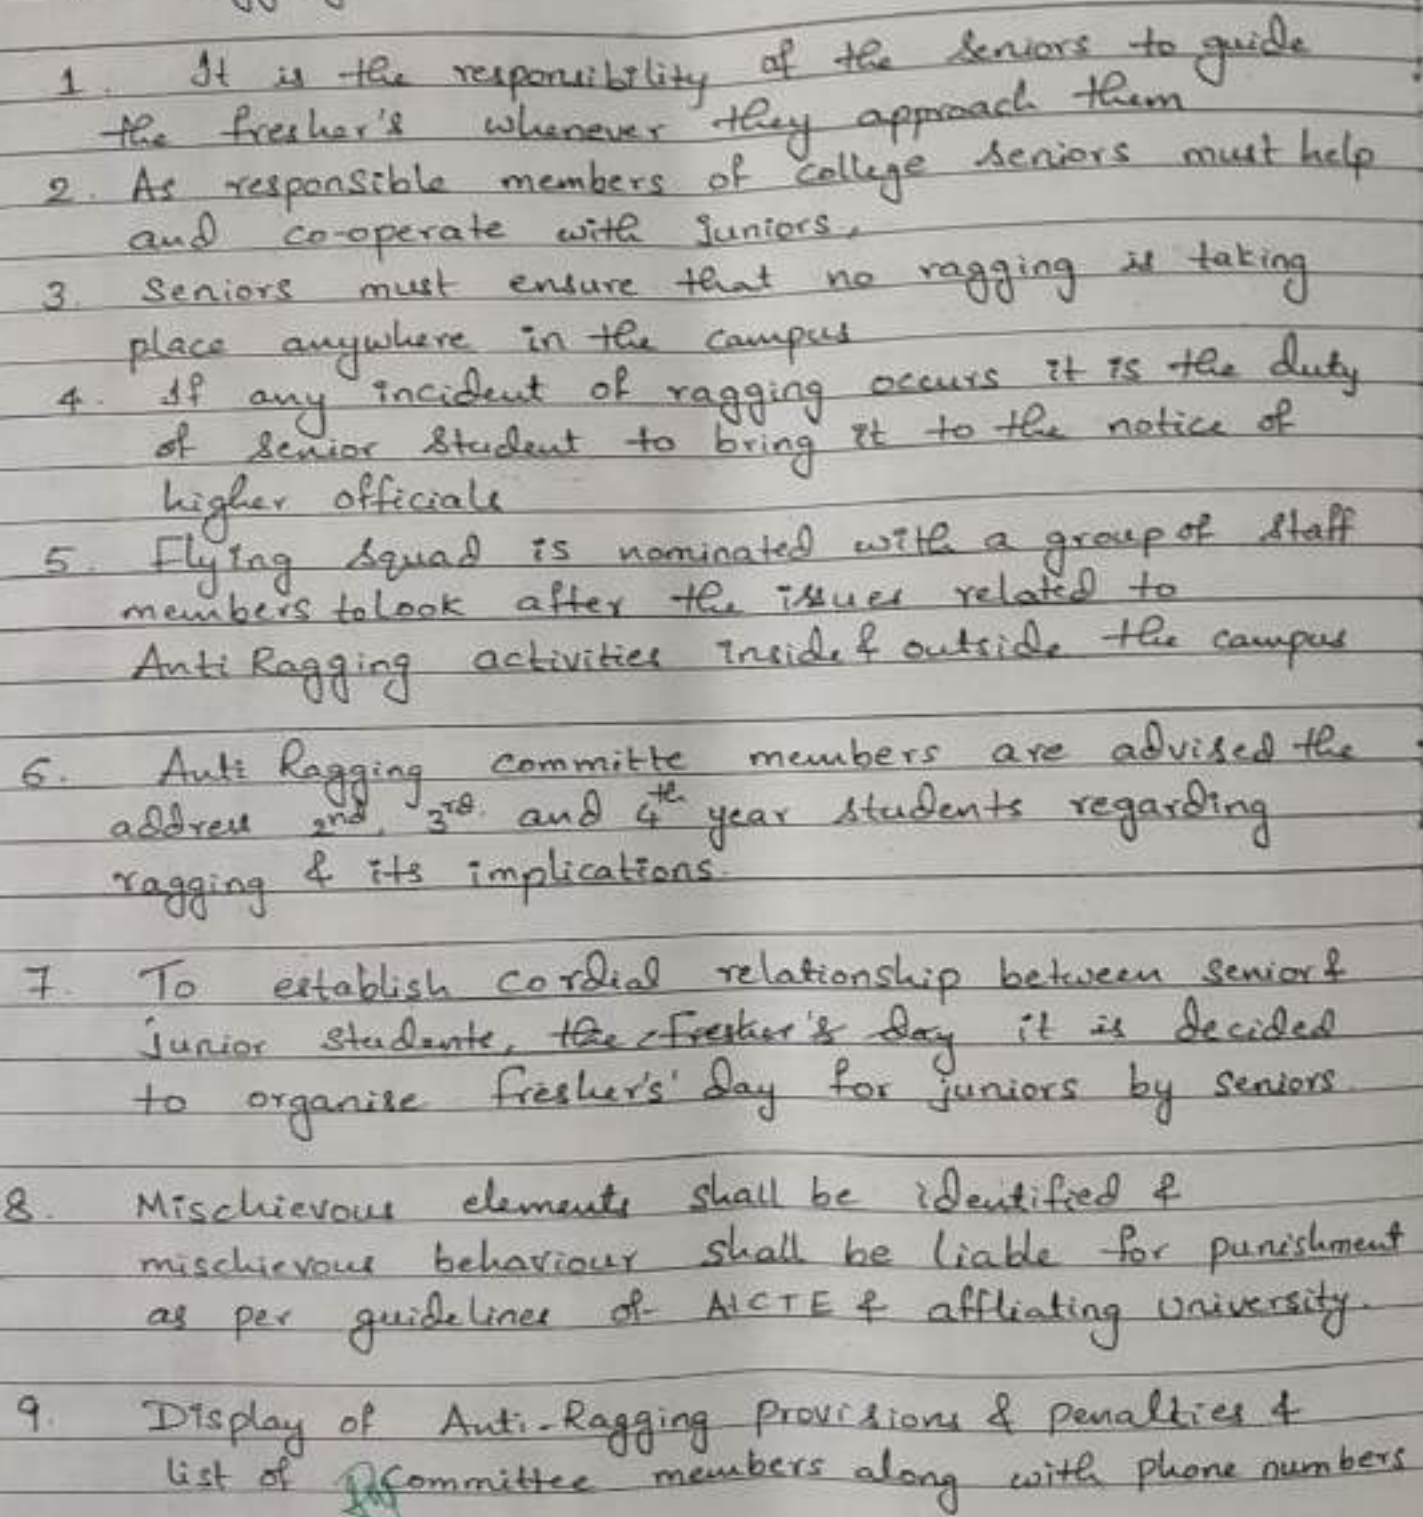 1. It is the responsibility of the seniors to guide
the fresher's whenever they approach them
2. As responsible members of college seniors must help
and co-operate with juniors.
3. Seniors must ensure that no ragging is taking
place anywhere in the campus
4. If any incident of ragging occurs it is the duty
of senior student to bring it to the notice of
higher officials
5. Flying squad is nominated with a group of staff
members to look after the issues related to
Anti Ragging activities inside & outside the campus
6. Anti Ragging committe members are advised the
address 2nd, 3rd. and 4th year students regarding
ragging & its implications.
7. To establish cordial relationship between senior &
junior students, the fresher's day it is decided
to organise fresher's' day for juniors by seniors.
8. Mischievous elements shall be identified &
mischievous behaviour shall be liable for punishment
as per guidelines of AICTE & affliating university.
9. Display of Anti-Ragging provisions & penalties &
list of committee members along with phone numbers